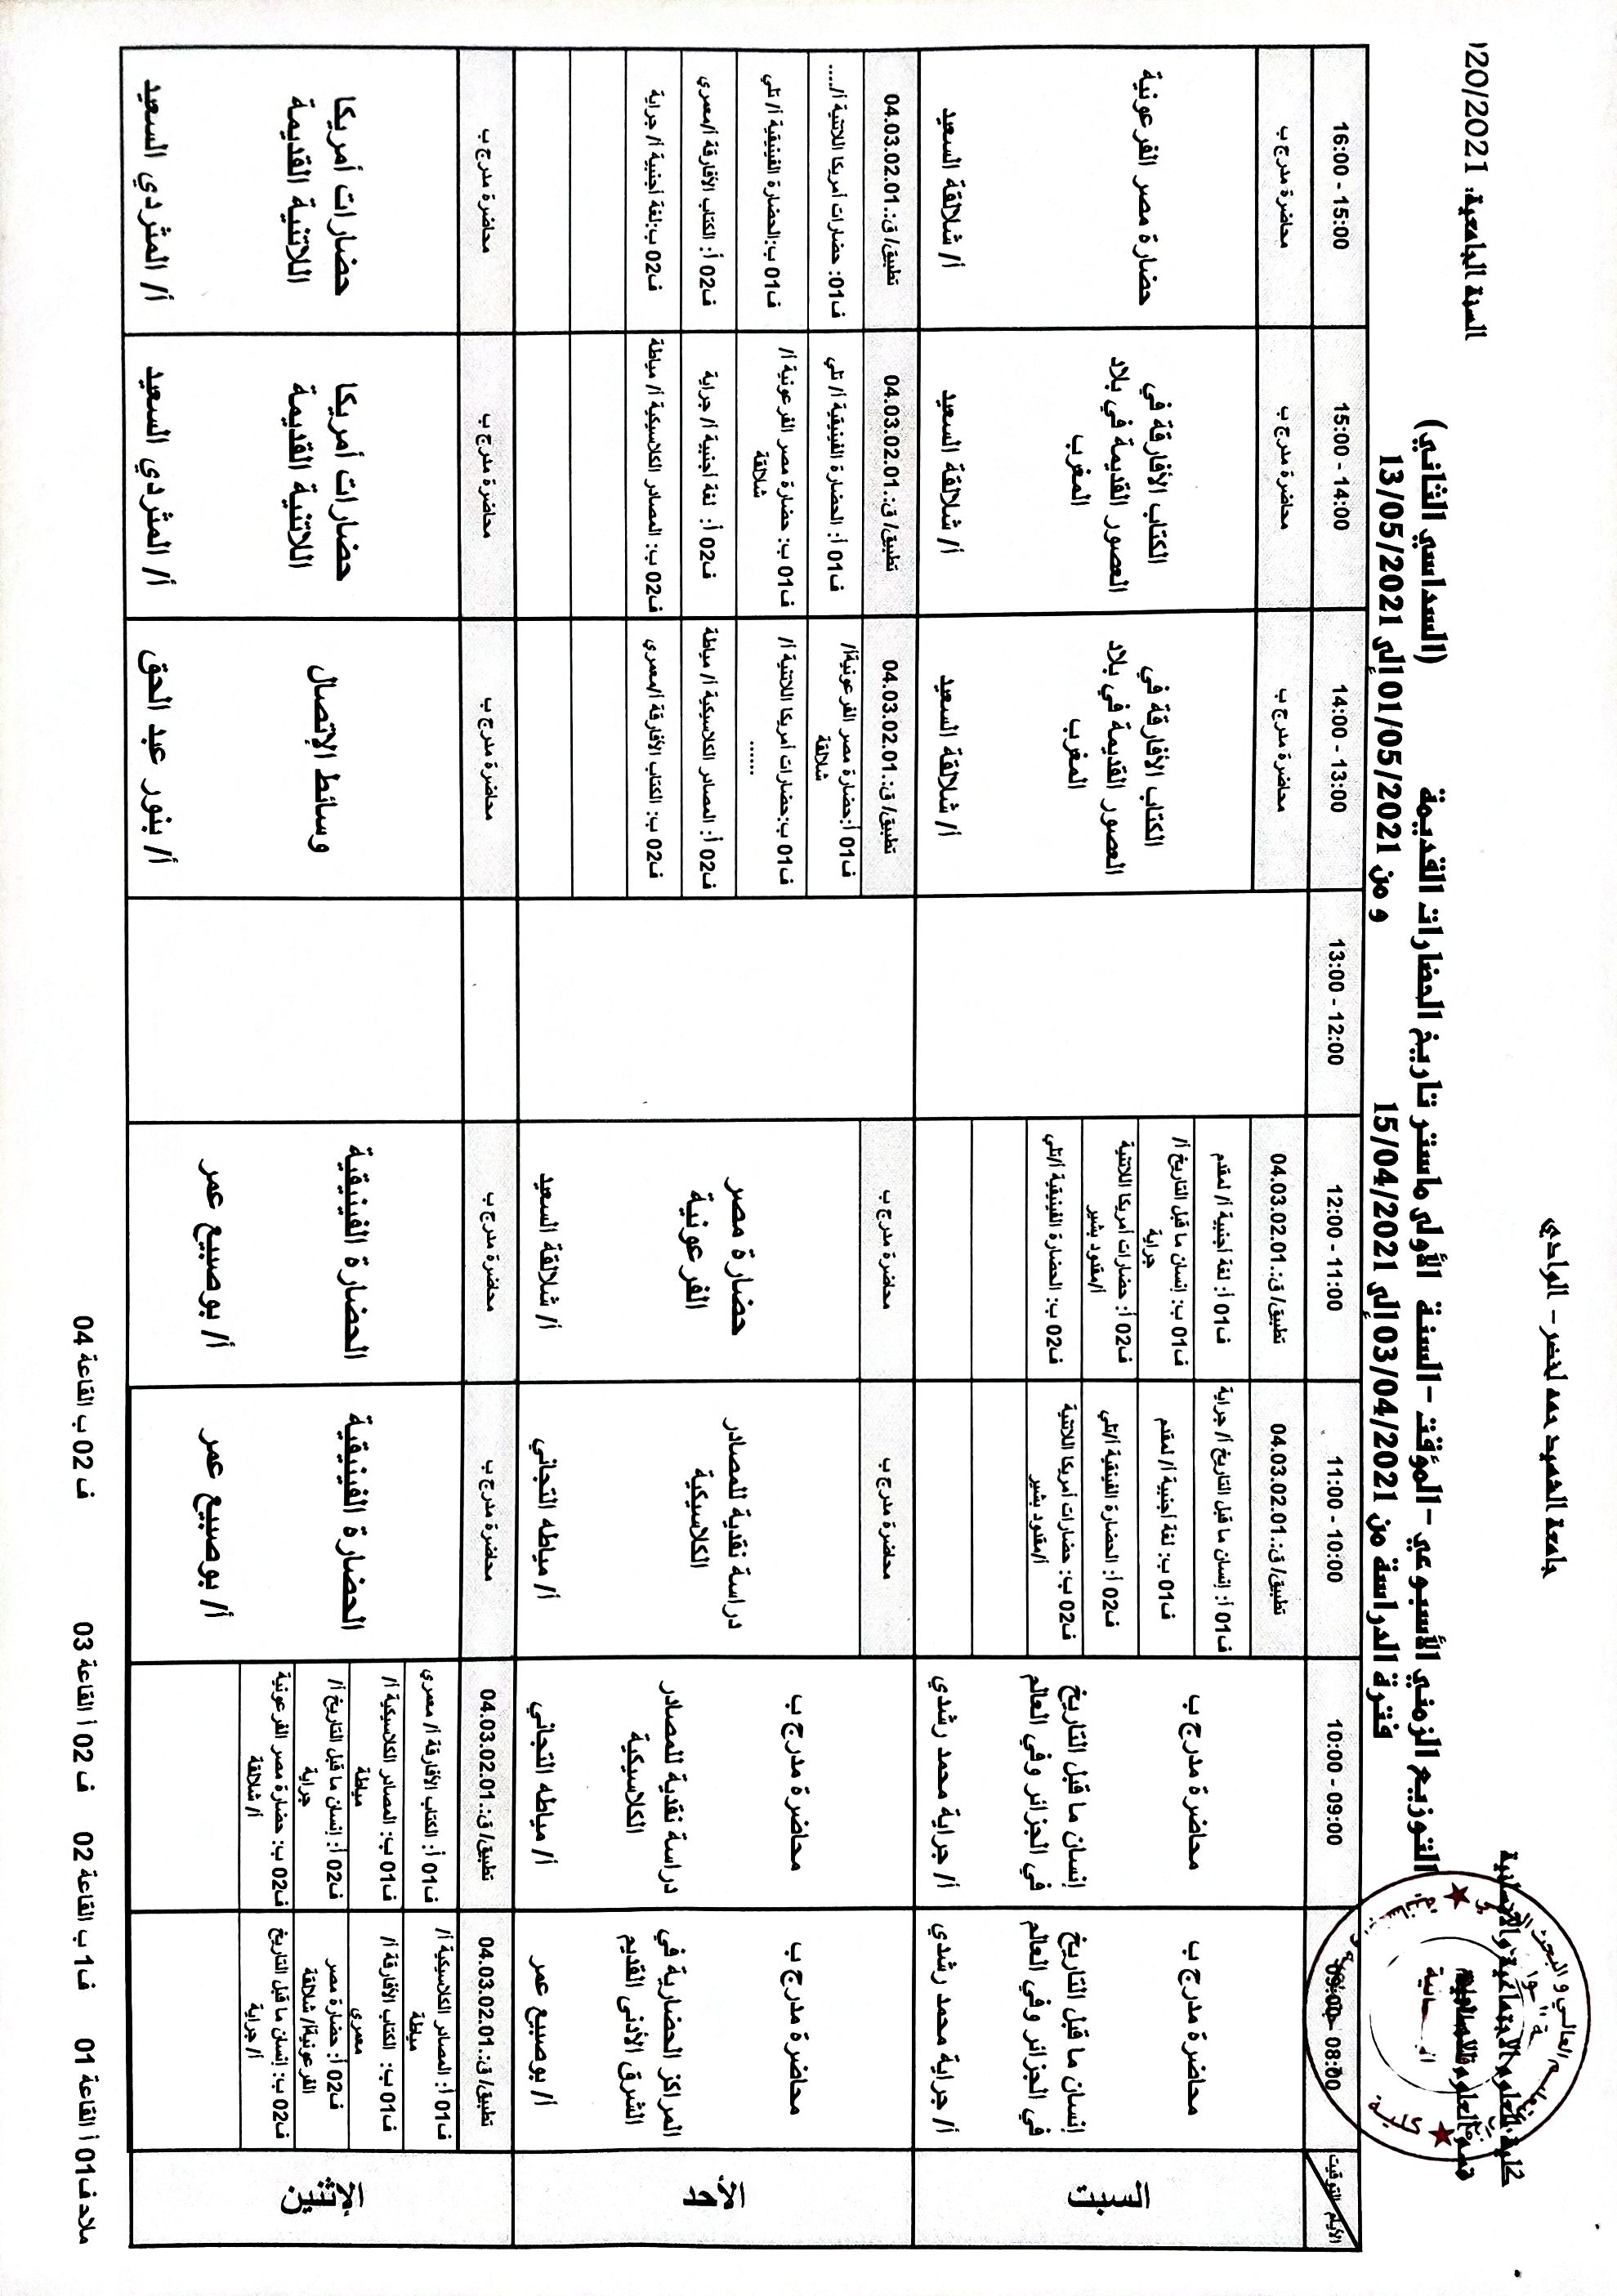 جامعة الشهيد حمه لخضر - الوادي
كلية العلوم الاجتماعية والإنسانية
السنة الجامعية: 020/2021
التوزيع الزمني الأسبوعي - المؤقت - السنة الأولى ماستر تاريخ الحضارات القديمة (السداسي الثاني)
فترة الدراسة من 03/04/2021 إلى 15/04/2021 و من 01/05/2021 إلى 13/05/2021
التوقيت
الأيام
08:00 - 09:00
09:00 - 10:00
10:00 - 11:00
11:00 - 12:00
12:00 - 13:00
13:00 - 14:00
14:00 - 15:00
15:00 - 16:00
السبت
محاضرة مدرج ب
إنسان ما قبل التاريخ
في الجزائر وفي العالم
أ/ جراية محمد رشدي
محاضرة مدرج ب
إنسان ما قبل التاريخ
في الجزائر وفي العالم
أ/ جراية محمد رشدي
تطبيق/ ق:.04.03.02.01
ف01 أ: إنسان ما قبل التاريخ أ/ جراية
ف01 ب: لغة أجنبية أ/ لمقدم
ف02 أ: الحضارة الفينقية أ/تلي
ف02 ب: حضارات أمريكا اللاتنية
أ/مقدود بشير
تطبيق/ ق:.04.03.02.01
ف01 أ: لغة أجنبية أ/ لمقدم
ف01 ب: إنسان ما قبل التاريخ أ/
جراية
ف02 أ: حضارات أمريكا اللاتنية
أ/مقدود بشير
ف02 ب: الحضارة الفينيقية أ/تلي
محاضرة مدرج ب
الكتاب الأفارقة في
العصور القديمة في بلاد
المغرب
أ/ شلالقة السعيد
محاضرة مدرج ب
الكتاب الأفارقة في
العصور القديمة في بلاد
المغرب
أ/ شلالقة السعيد
محاضرة مدرج ب
حضارة مصر الفرعونية
أ/ شلالقة السعيد
الأحد
محاضرة مدرج ب
المراكز الحضارية في
الشرق الأدنى القديم
أ/ بوصبيع عمر
محاضرة مدرج ب
دراسة نقدية للمصادر
الكلاسيكية
أ/ مياطه التجاني
محاضرة مدرج ب
دراسة نقدية للمصادر
الكلاسيكية
أ/ مياطه التجاني
محاضرة مدرج ب
حضارة مصر
الفرعونية
أ/ شلالقة السعيد
تطبيق/ ق:.04.03.02.01
ف01 أ:حضارة مصر الفرعونيةأ/
شلالقة
ف01 ب:حضارات أمريكا اللاتنية أ/
......
ف02 أ: المصادر الكلاسيكية أ/ مياطة
ف02 ب: الكتاب الأفارقة أ/معمري
تطبيق/ ق:.04.03.02.01
ف01 أ: الحضارة الفينيقية أ/ تلي
ف01 ب: حضارة مصر الفرعونية أ/
شلالقة
ف02 أ: لغة أجنبية أ/ جراية
ف02 ب: المصادر الكلاسيكية أ/ مياطة
تطبيق/ ق:.04.03.02.01
ف01: حضارات أمريكا اللاتنية أ/....
ف01 ب:الحضارة الفينيقية أ/ تلي
ف02 أ: الكتاب الأفارقة أ/معمري
ف02 ب:لغة أجنبية أ/ جراية
الاثنين
تطبيق/ ق:.04.03.02.01
ف01 أ: المصادر الكلاسيكية أ/
مياطة
ف01 ب: الكتاب الأفارقة أ/
معمري
ف02 أ: حضارة مصر
الفرعونيةأ/ شلالقة
ف02 ب: إنسان ما قبل التاريخ
أ/ جراية
تطبيق/ ق:.04.03.02.01
ف01 أ: الكتاب الأفارقة أ/ معمري
ف01 ب: المصادر الكلاسيكية أ/
مياطة
ف02 أ: إنسان ما قبل التاريخ أ/
جراية
ف02 ب: حضارة مصر الفرعونية
أ/ شلالقة
محاضرة مدرج ب
الحضارة الفينيقية
أ/ بوصبيع عمر
محاضرة مدرج ب
الحضارة الفينيقية
أ/ بوصبيع عمر
محاضرة مدرج ب
وسائط الإتصال
أ/ بنور عبد الحق
محاضرة مدرج ب
حضارات أمريكا
اللاتنية القديمة
أ/ المثردي السعيد
محاضرة مدرج ب
حضارات أمريكا
اللاتنية القديمة
أ/ المثردي السعيد
ملاحد ف01 أ القاعة 01 ف1 ب القاعة 02 ف 02 أ القاعة 03 ف 02 ب القاعة 04